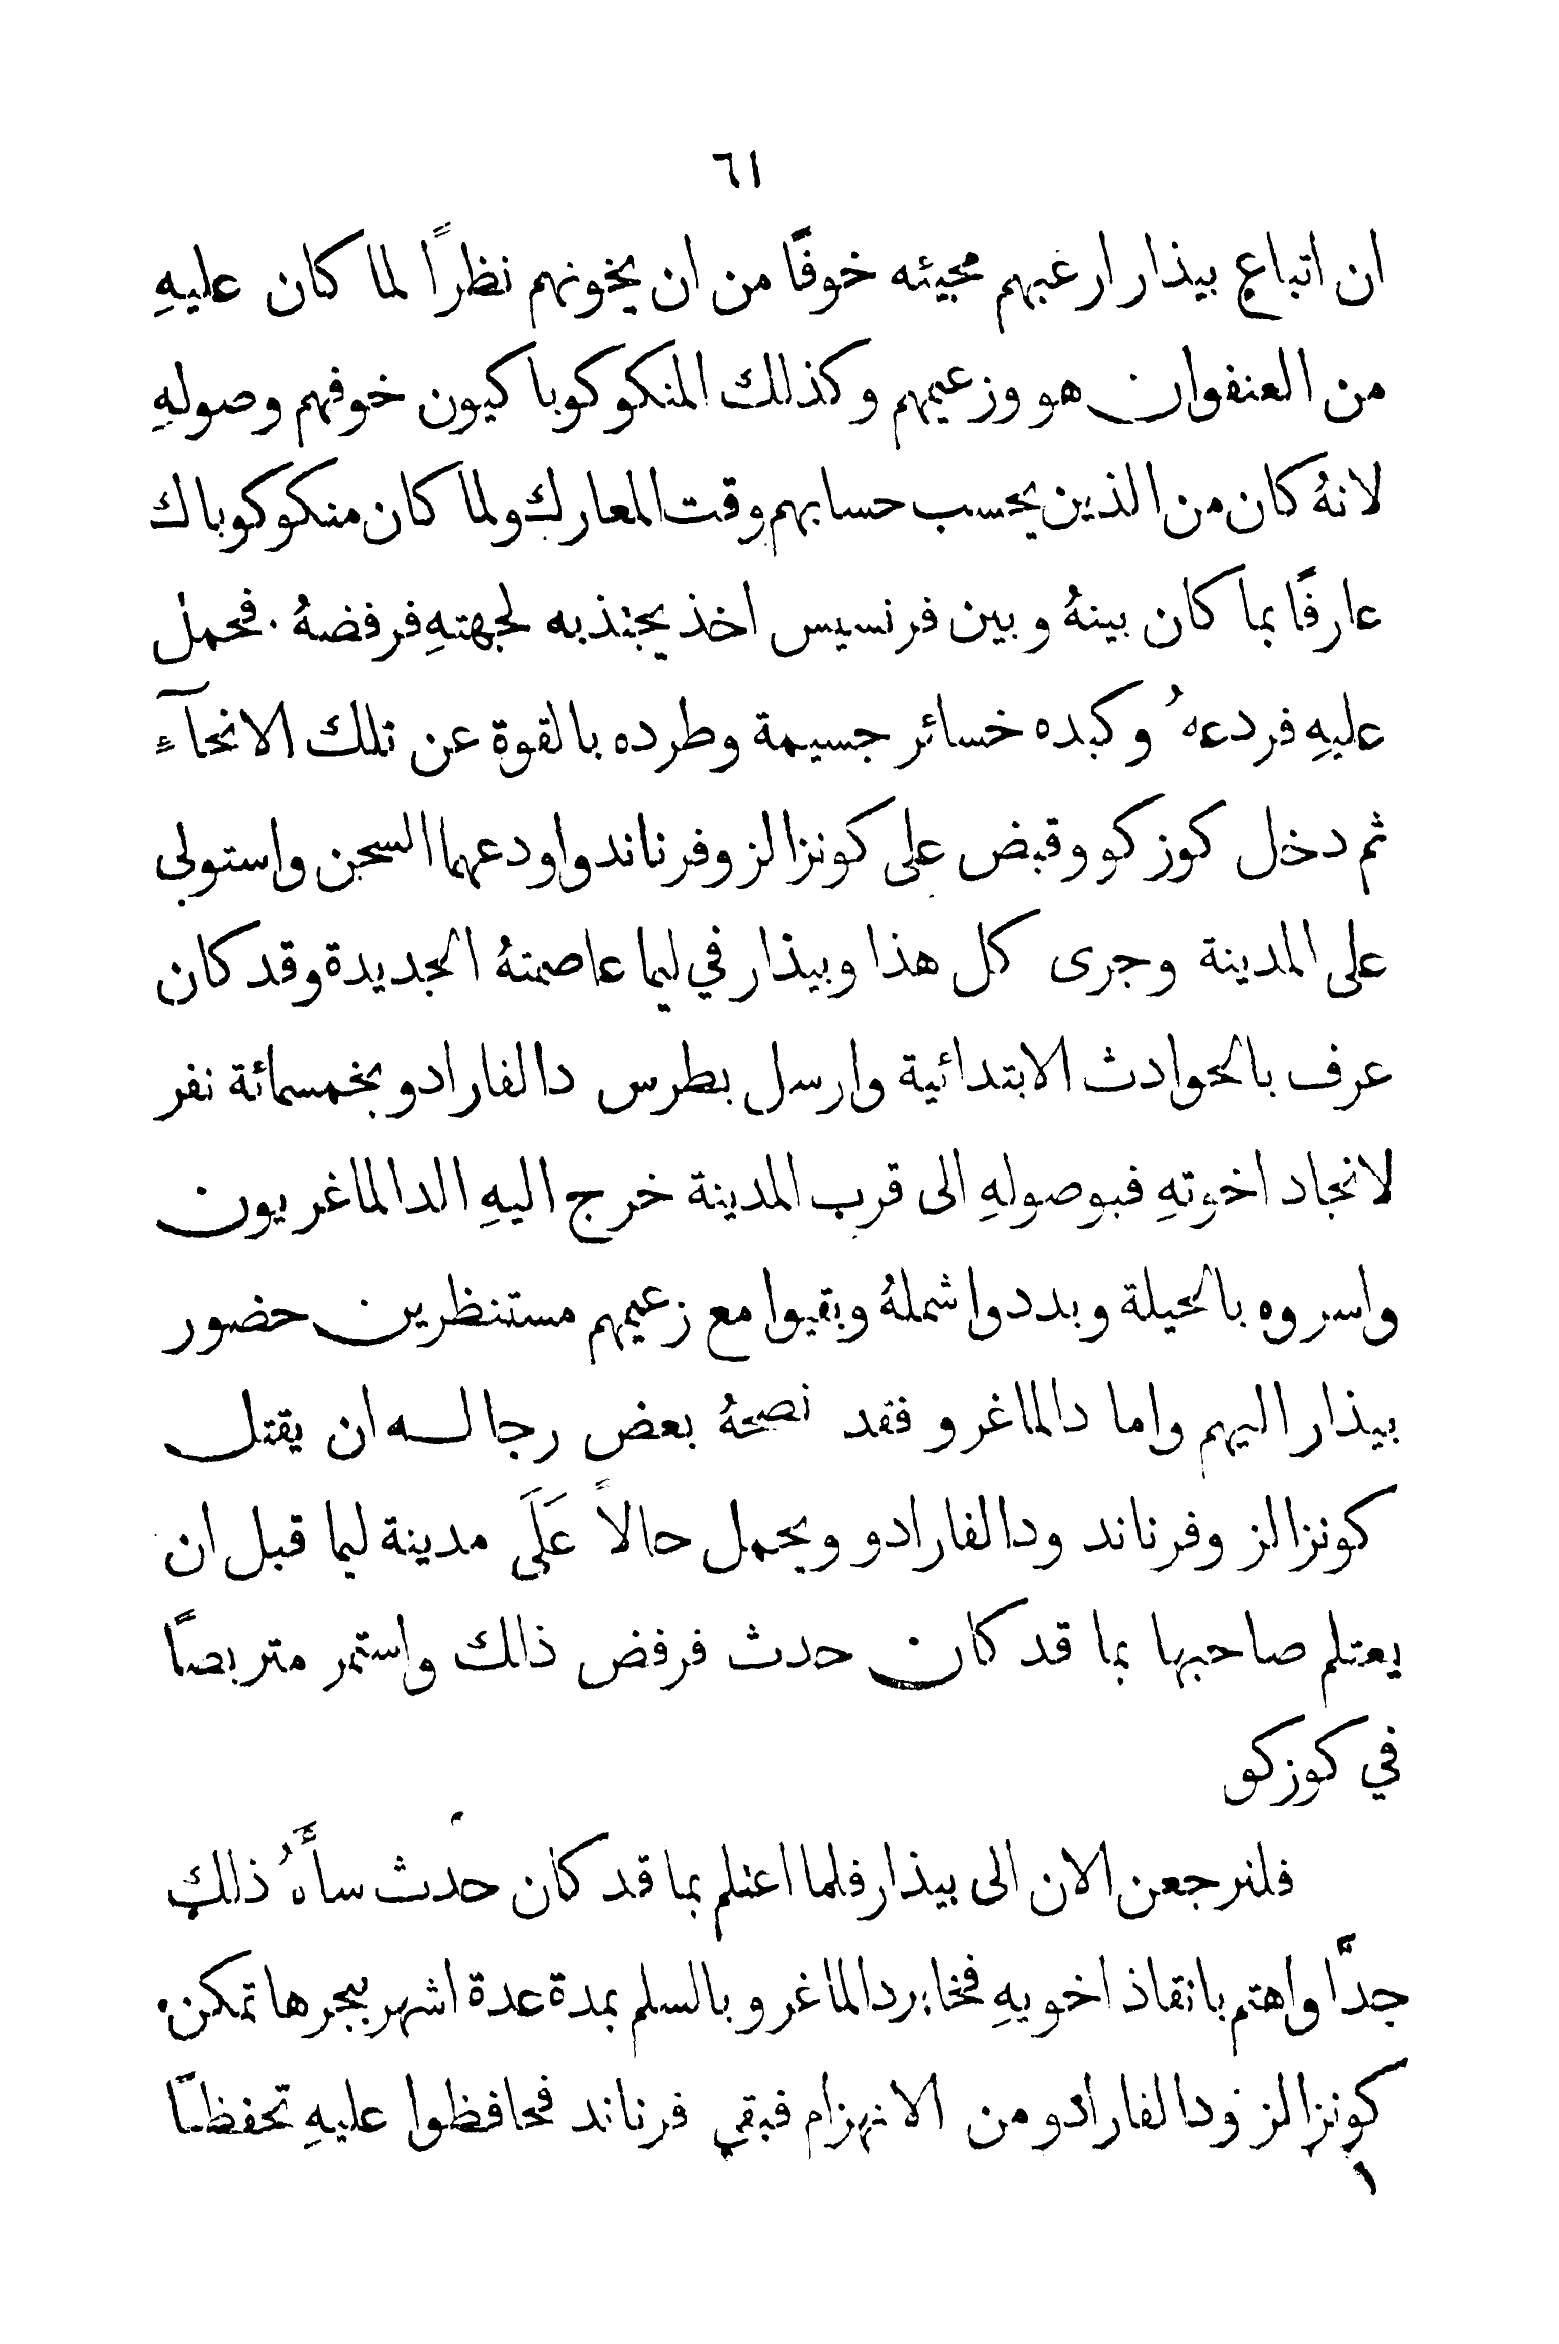 ٦١
ان اتباع بيذار ارغبهم مجيئه خوفًا من ان يخونهم نظرًا لما كان عليهِ
من العنفوان هو وزعيمهم وكذلك المنكوكوباكيون خوفهم وصولهِ
لانهُ كان من الذين يحسب حسابهم وقت المعارك ولما كان منكوكوباك
عارفًا بما كان بينهُ وبين فرنسيس اخذ يجتذبه لجهتهِ فرفضهُ . فحمل
عليهِ فردعهُ وكبده خسائر جسيمة وطرده بالقوة عن تلك الانحآء
ثم دخل كوزكو وقبض على كونزالز وفرناندو اودعهما السجن واستولى
على المدينة وجرى كل هذا وبيذار في ليما عاصمتهُ الجديدة وقد كان
عرف بالحوادث الابتدائية وارسل بطرس دالفارادو بخمسمائة نفر
لانجاد اخوتهِ فبوصولهِ الى قرب المدينة خرج اليهِ الدالماغريون
واسروه بالحيلة وبددوا شملهُ وبقيوا مع زعيمهم مستنظرين حضور
بيذار اليهم واما دالماغرو فقد نصحهُ بعض رجاله ان يقتل
كونزالز وفرناند ودالفارادو ويحمل حالاً عَلَى مدينة ليما قبل ان
يعتلم صاحبها بما قد كان حدث فرفض ذلك واستمر متربصًا
في كوزكو
فلنرجعن الان الى بيذار فلما اعتلم بما قد كان حدث سأَهُ ذلك
جدًّا واهتم بانقاذ اخويهِ فخابر دالماغرو بالسلم بمدة عدة اشهر بجرها تمكن
كونزالز ودالفارادو من الانهزام فبقي فرناند فحافظوا عليهِ تحفظًا